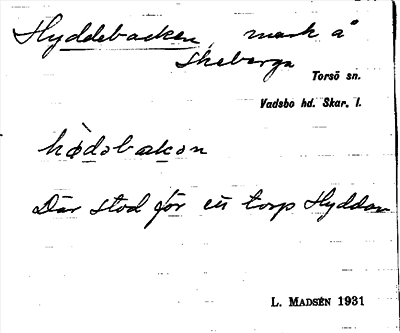 Hyddebacken, mark å
Skeberga
Torsö sn.
Vadsbo hd. Skar. l.
hødəbakən
Där stod för ett torp Hyddan
L. MADSÉN 1931